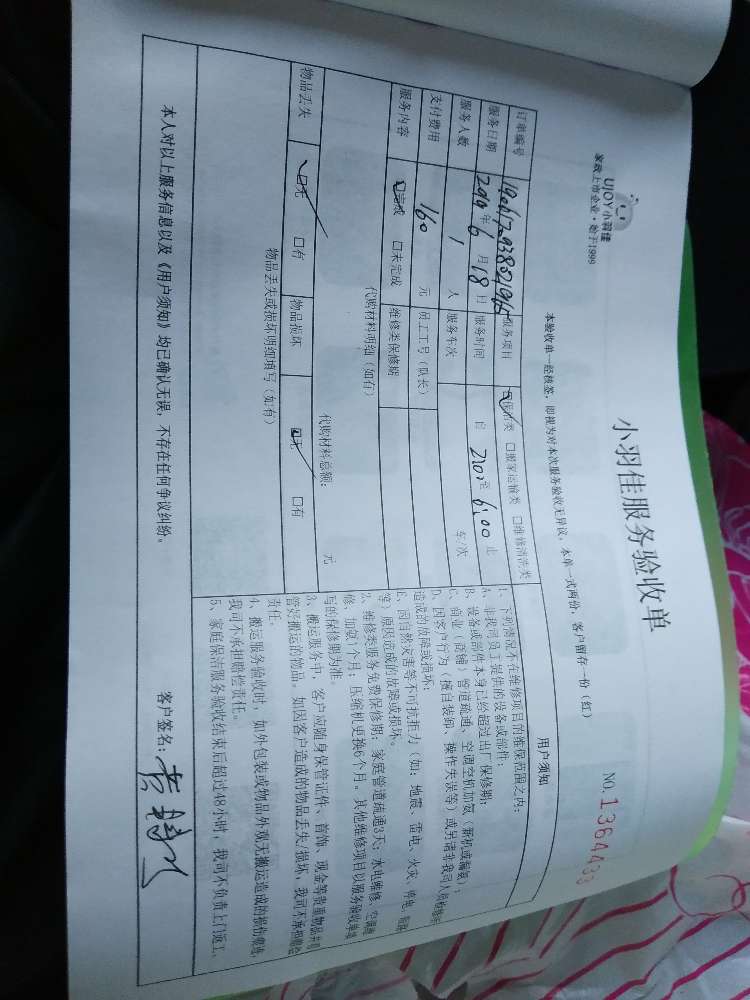 UJOY小羽佳
家政上市企业·始于1999
小羽佳服务验收单
NO.1364433
本验收单一经核签，即视为对本次服务验收无异议，本单一式两份，客户留存一份（红）
订单编号 服务项目 ☑保洁类 □搬家运输类 □维修清洗类
服务日期 年 6 月 18 日 服务时间 自 2:00 至 6:00 止
服务人数 1 人 服务车次 车/次
支付费用 160 元 员工工号（队长）
服务内容 ☑完成 □未完成 维修类保修期
代购材料明细（如有）
代购材料总额： 元
物品丢失 ☑无 □有 物品损坏 ☑无 □有
物品丢失或损坏明细填写（如有）
用户须知
1、下列情况不在维修项目的维保范围之内：
A、非我司员工提供的设备或部件；
B、设备或部件本身已经超过出厂保修期；
C、商业（商铺）管道疏通、空调空机加氨（新机或漏氨）；
D、因客户行为（擅自装卸、操作失误等）或另请非我司人员检修
造成的故障或损坏；
E、因自然灾害等不可抗拒力（如：地震、雷电、火灾、停电、
等）原因造成的故障或损坏。
2、维修类服务免费保修期：家庭管道疏通3天；水电维修、空调维
修、加氨1个月；压缩机更换6个月。其他维修项目以服务验收单填
写的保修期为准。
3、搬运服务中，客户应随身保管证件、首饰、现金等贵重物品并
管好搬运的物品。如因客户造成的物品丢失/损坏，我司不承担赔偿
责任。
4、搬运服务验收时，如外包装或物品外观无搬运造成的损伤痕迹，
我司不承担赔偿责任。
5、家庭保洁服务验收结束后超过48小时，我司不负责上门返工。
本人对以上服务信息以及《用户须知》均已确认无误，不存在任何争议纠纷。
客户签名：